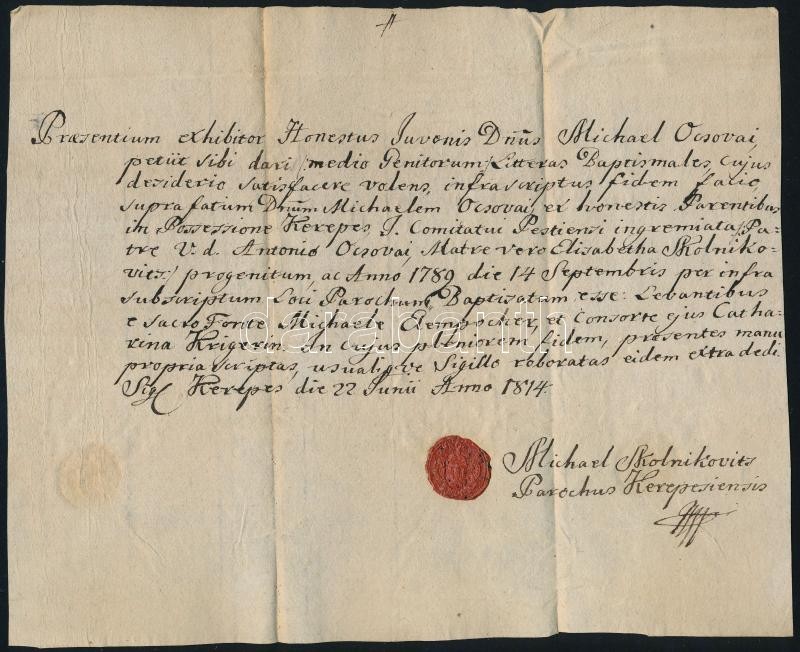 Præsentium exhibitor Honestus Juvenis Dñus Michael Ocsovai,
petiit sibi dari /:medio Genitorum:/ Litteras Baptismales, cujus
desiderio satisfacere volens, infrascriptus fidem facio,
suprafatum Dñum Michaelem Ocsovai, ex honestis Parentibus
in Possessione Kerepes J. Comitatui Pestiensi ingremiata /:Pa-
tre V. d. Antonio Ocsovai, Matre vero Elisabetha Skolniko-
vits:/ progenitum, ac Anno 1789 die 14 Septembris per infra
subscriptum Loci Parochum Baptisatum esse: Levantibus
e sacro Fonte Michaele Elempscher, et Consorte ejus Catha-
rina Krigerin. In cujus pleniorem fidem, præsentes manu
propria scriptas, usualique Sigillo roboratas eidem extradedi.
Sigl Kerepes die 22 Junii Anno 1814.
Michael Skolnikovits
Parochus Kerepesiensis
darabanth